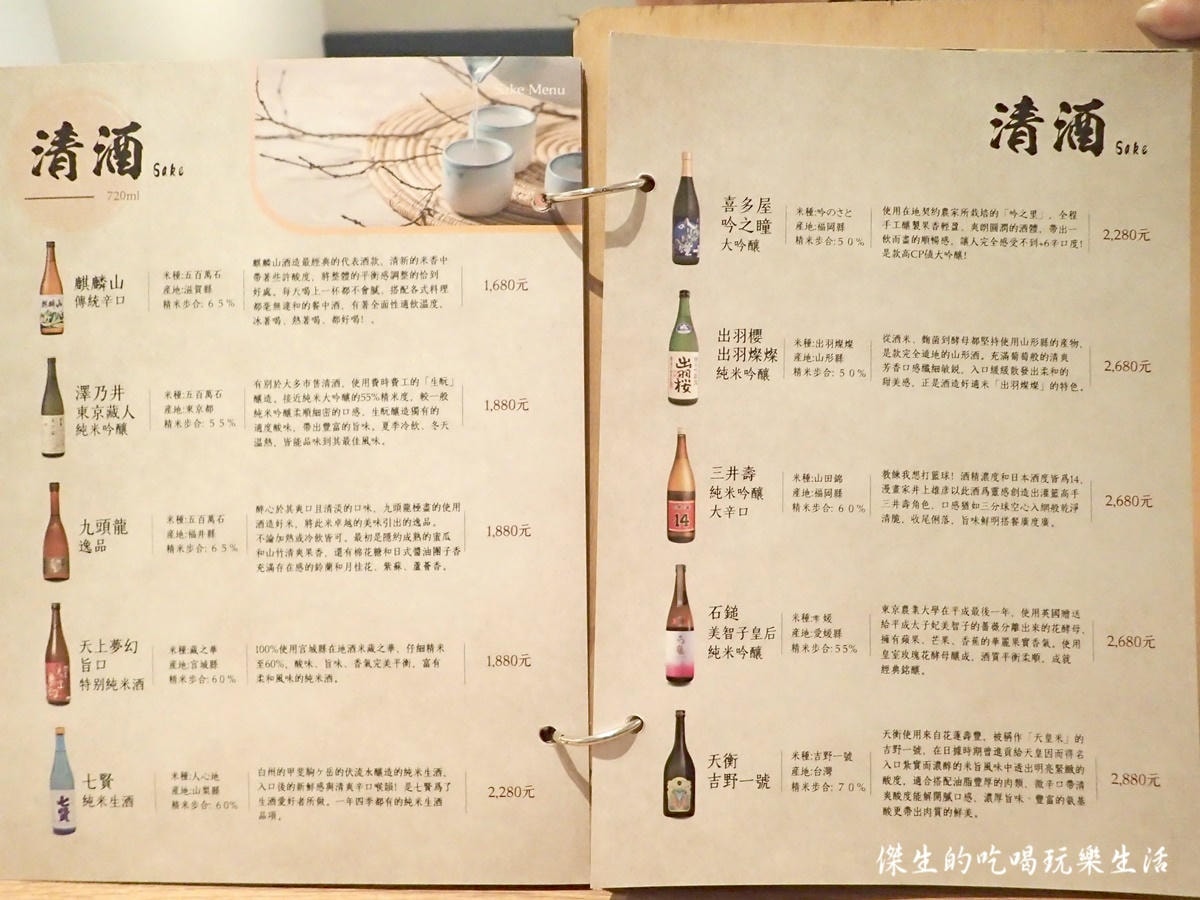 Sake Menu
清酒 Sake
720ml
麒麟山
傳統辛口
米種:五百萬石
產地:滋賀縣
精米步合: 65%
麒麟山酒造最經典的代表酒款，清新的米香中
帶著些許酸度，將整體的平衡感調整的恰到
好處。每天喝上一杯都不會膩，搭配各式料理
都毫無違和的餐中酒，有著全面性適飲溫度。
冰著喝、熱著喝、都好喝！。
1,680元
澤乃井
東京藏人
純米吟釀
米種:五百萬石
產地:東京都
精米步合: 55%
有別於大多市售清酒，使用費時費工的「生酛」
釀造。接近純米大吟釀的55%精米度，較一般
純米吟釀柔順細密的口感，生酛釀造獨有的
適度酸味，帶出豐富的旨味。夏季冷飲、冬天
溫熱，皆能品味到其最佳風味。
1,880元
九頭龍
逸品
米種:五百萬石
產地:福井縣
精米步合: 65%
醉心於其爽口且清淡的口味，九頭龍極盡的使用
酒造好米，將此米卓越的美味引出的逸品。
不論加熱或冷飲皆可。最初是隱約成熟的蜜瓜
和山竹清爽果香，還有棉花糖和日式醬油團子香
充滿存在感的鈴蘭和月桂花、紫蘇、蘆薈香。
1,880元
天上夢幻
旨口
特別純米酒
米種:藏之華
產地:宮城縣
精米步合:60%
100%使用宮城縣在地酒米藏之華，仔細精米
至60%，酸味、旨味、香氣完美平衡，富有
柔和風味的純米酒。
1,880元
七賢
純米生酒
米種:人心地
產地:山梨縣
精米步合: 60%
白州的甲斐駒ヶ岳的伏流水釀造的純米生酒，
入口後的新鮮感與清爽辛口喉韻！是七賢爲了
生酒愛好者所做。一年四季都有的純米生酒
品項。
2,280元
清酒 Sake
喜多屋
吟之瞳
大吟釀
米種:吟のさと
產地:福岡縣
精米步合:50%
使用在地契約農家所栽培的「吟之里」，全程
手工釀製果香輕盈、爽朗圓潤的酒體，帶出一
飲而盡的順暢感，讓人完全感受不到+6辛口度!
是款高CP值大吟釀!
2,280元
出羽櫻
出羽燦燦
純米吟釀
米種:出羽燦燦
產地:山形縣
精米步合: 50%
從酒米、麴菌到酵母都堅持使用山形縣的產物，
是款完全道地的山形酒。充滿葡萄般的清爽
芳香口感纖細敏銳，入口緩緩散發出柔和的
甜美感，正是酒造好適米「出羽燦燦」的特色。
2,680元
三井壽
純米吟釀
大辛口
米種:山田錦
產地:福岡縣
精米步合: 60%
教練我想打籃球！酒精濃度和日本酒度皆爲14，
漫畫家井上雄彥以此酒爲靈感創造出灌籃高手
三井壽角色，口感猶如三分球空心入網般乾淨
清脆，收尾俐落，旨味鮮明搭餐廣度廣。
2,680元
石鎚
美智子皇后
純米吟釀
米種:雫媛
產地:愛媛縣
精米步合:55%
東京農業大學在平成最後一年，使用英國贈送
給平成太子妃美智子的薔薇分離出來的花酵母，
擁有蘋果、芒果、香蕉的華麗果實香氣。使用
皇室玫瑰花酵母釀成，酒質平衡柔順，成就
經典銘釀。
2,680元
天衡
吉野一號
米種:吉野一號
產地:台灣
精米步合: 70%
天衡使用來自花蓮壽豐，被稱作「天皇米」的
吉野一號，在日據時期曾進貢給天皇因而得名
入口紮實而濃醇的米旨風味中透出明亮緊緻的
酸度，適合搭配油脂豐厚的肉類，微辛口帶清
爽酸度能解開膩口感，濃厚旨味、豐富的氨基
酸更帶出肉質的鮮美。
2,880元
麒麟山
七賢
出羽桜
14
傑生的吃喝玩樂生活